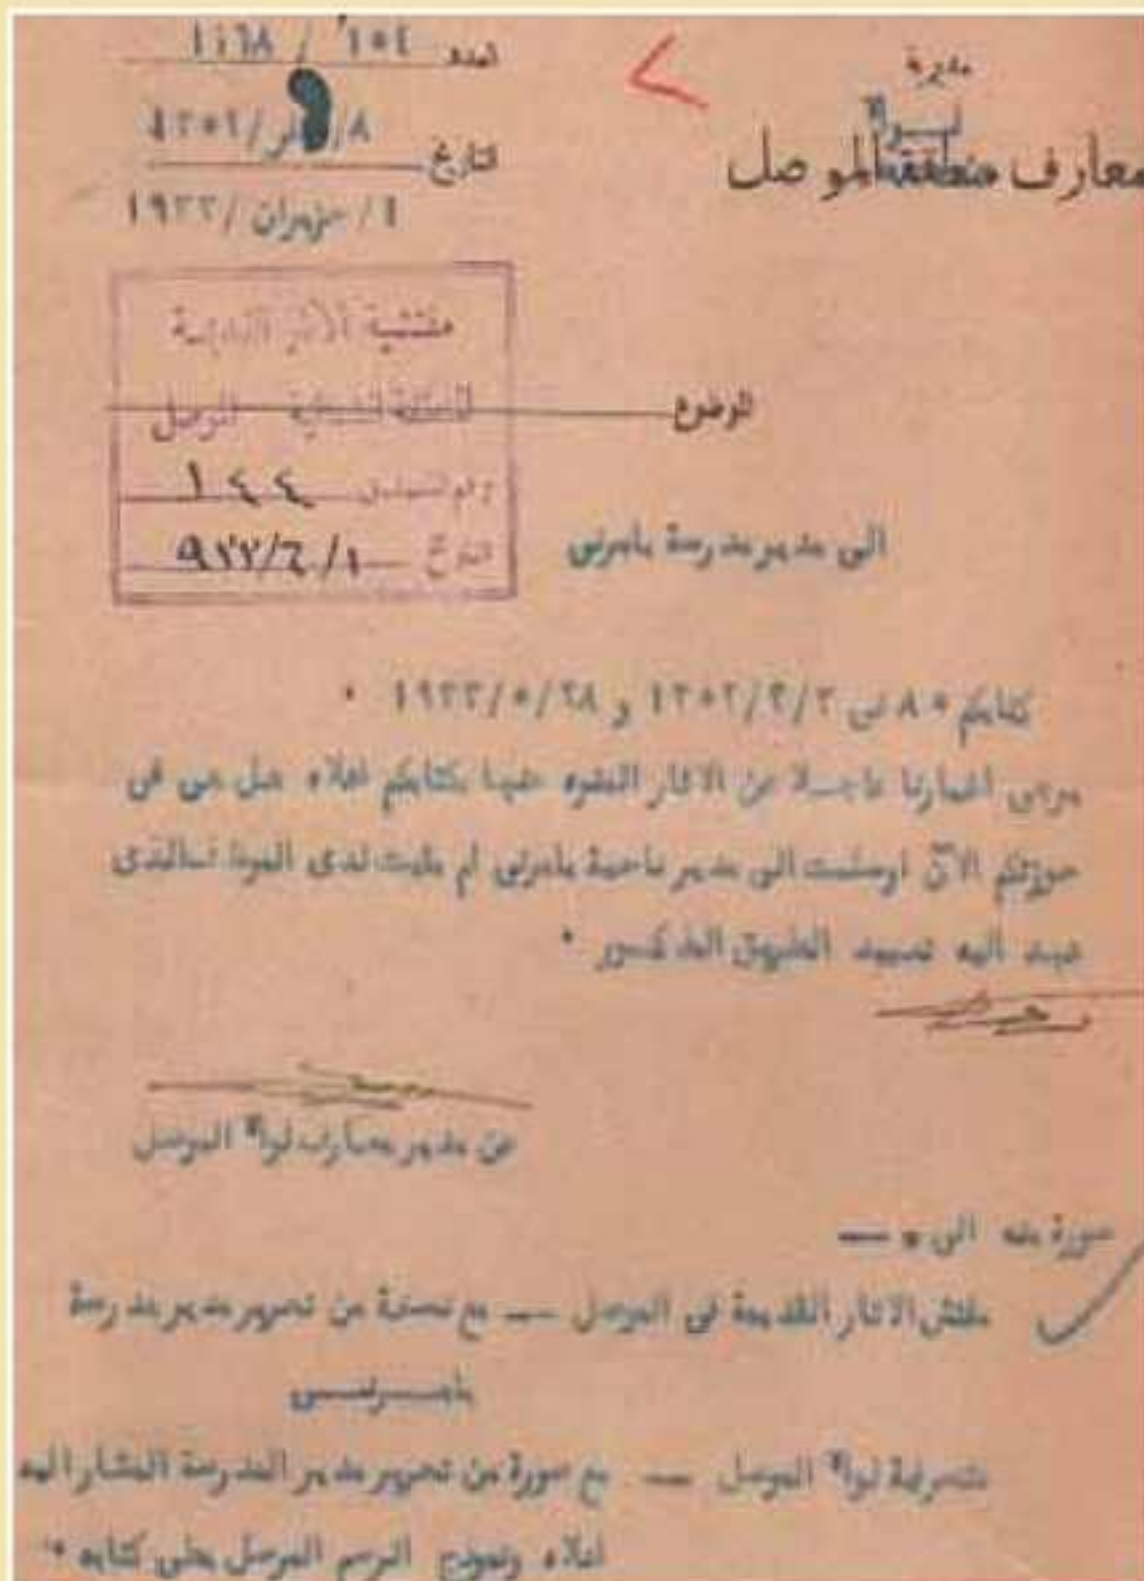 مديرية
لواء
معارف منطقة الموصل
العدد ٦٥٤ / ١١٦٨
التاريخ ٨/ /١٣٥٢
١/ حزيران /١٩٣٣
مفتشية الآثار القديمة
للمنطقة الشمالية الموصل
رقم التسجيل ١٤٤
التاريخ ١/٦/٩٣٣
الموضوع
الى مدير مدرسة بامرني
كتابكم ٨٠ في ٣/٣/١٣٥٢ و ٢٨/٥/١٩٣٣ ٠
يرجى اخبارنا عاجلا عن الاثار المنوه عنها بكتابكم اعلاه هل هي في
حوزتكم الآن اوسلمت الى مدير ناحية بامرني ام بقيت لدى الموما اليه الذى
عهد اليه تعبيد الطريق المذكور ٠
عن مدير معارف لواء الموصل
صورة منه الى ٠ —
مفتش الاثار القديمة في الموصل — مع نسخة من تحرير مدير مدرسة
بامرني
متصرفية لواء الموصل — مع صورة من تحرير مدير المدرسة المشار اليه
اعلاه ونموذج الرسم المرسل بطى كتابه ٠